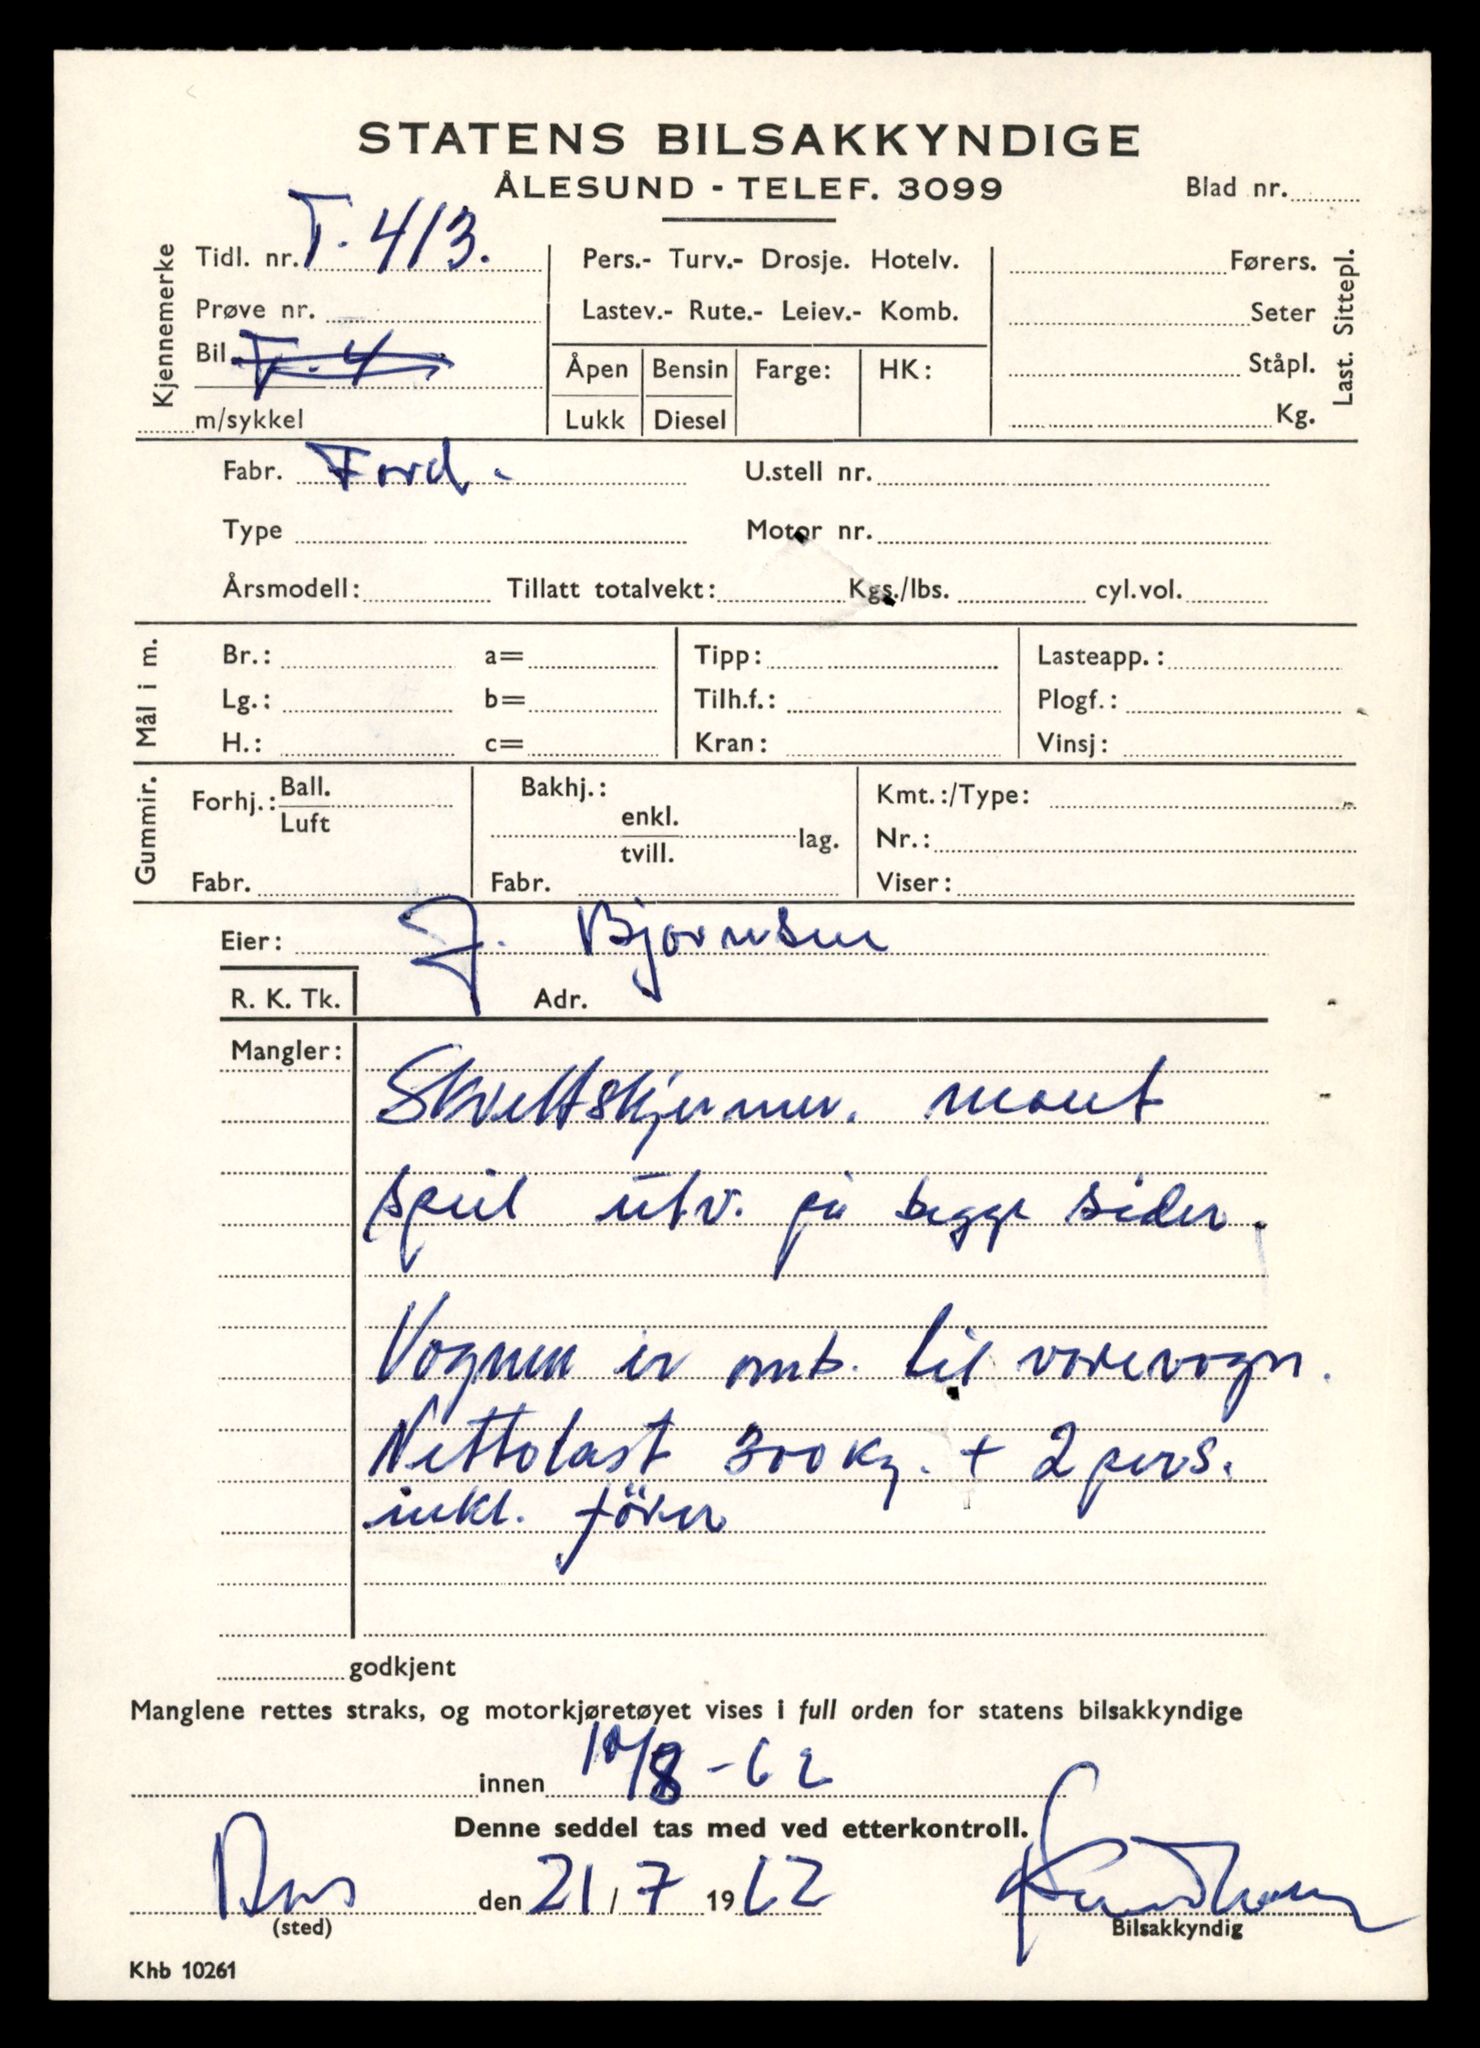 STATENS BILSAKKYNDIGE
ÅLESUND - TELEF. 3099
Blad nr.
Kjennemerke
Tidl. nr. T. 413.
Prøve nr.
Bil T. 4
m/sykkel
Pers.- Turv.- Drosje. Hotelv.
Lastev.- Rute.- Leiev.- Komb.
Åpen Bensin Farge: HK:
Lukk Diesel
Førers.
Seter
Ståpl.
Kg.
Last. Sittepl.
Fabr. Ford. U.stell nr.
Type Motor nr.
Årsmodell: Tillatt totalvekt: Kgs./lbs. cyl.vol.
Mål i m.
Br.: a= Tipp: Lasteapp.:
Lg.: b= Tilh.f.: Plogf.:
H.: c= Kran: Vinsj:
Gummir.
Forhj.: Ball. Luft
Fabr.
Bakhj.:
enkl. tvill. lag.
Fabr.
Kmt.:/Type:
Nr.:
Viser:
Eier: J. Bjornsen
R. K. Tk. Adr.
Mangler:
Skvettskjermer. mont
speil utv. på begge sider.
Vognen er omb. til varevogn.
Nettolast 300 kg. + 2 pers.
inkl. förer
godkjent
Manglene rettes straks, og motorkjøretøyet vises i full orden for statens bilsakkyndige
innen 10/8-62
Denne seddel tas med ved etterkontroll.
den 21/7 1962
(sted) Bilsakkyndig
Khb 10261